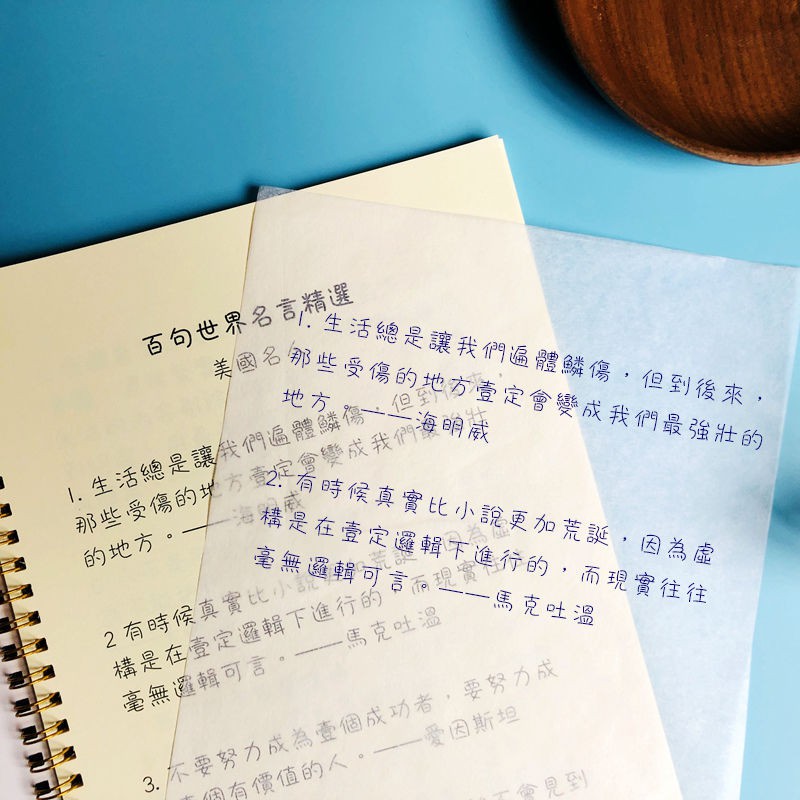 百句世界名言精選
美國名
1. 生活總是讓我們遍體鱗傷,但到後來,
那些受傷的地方壹定會變成我們最強壯
的地方。——海明威
2 有時候真實比小說更加荒誕,因為虛
構是在壹定邏輯下進行的,而現實往往
毫無邏輯可言。——馬克吐溫
3. 不要努力成為壹個成功者,要努力成
壹個有價值的人。——愛因斯坦
不會見到
1. 生活總是讓我們遍體鱗傷,但到後來,
那些受傷的地方壹定會變成我們最強壯的
地方。——海明威
2. 有時候真實比小說更加荒誕,因為虛
構是在壹定邏輯下進行的,而現實往往
毫無邏輯可言。——馬克吐溫